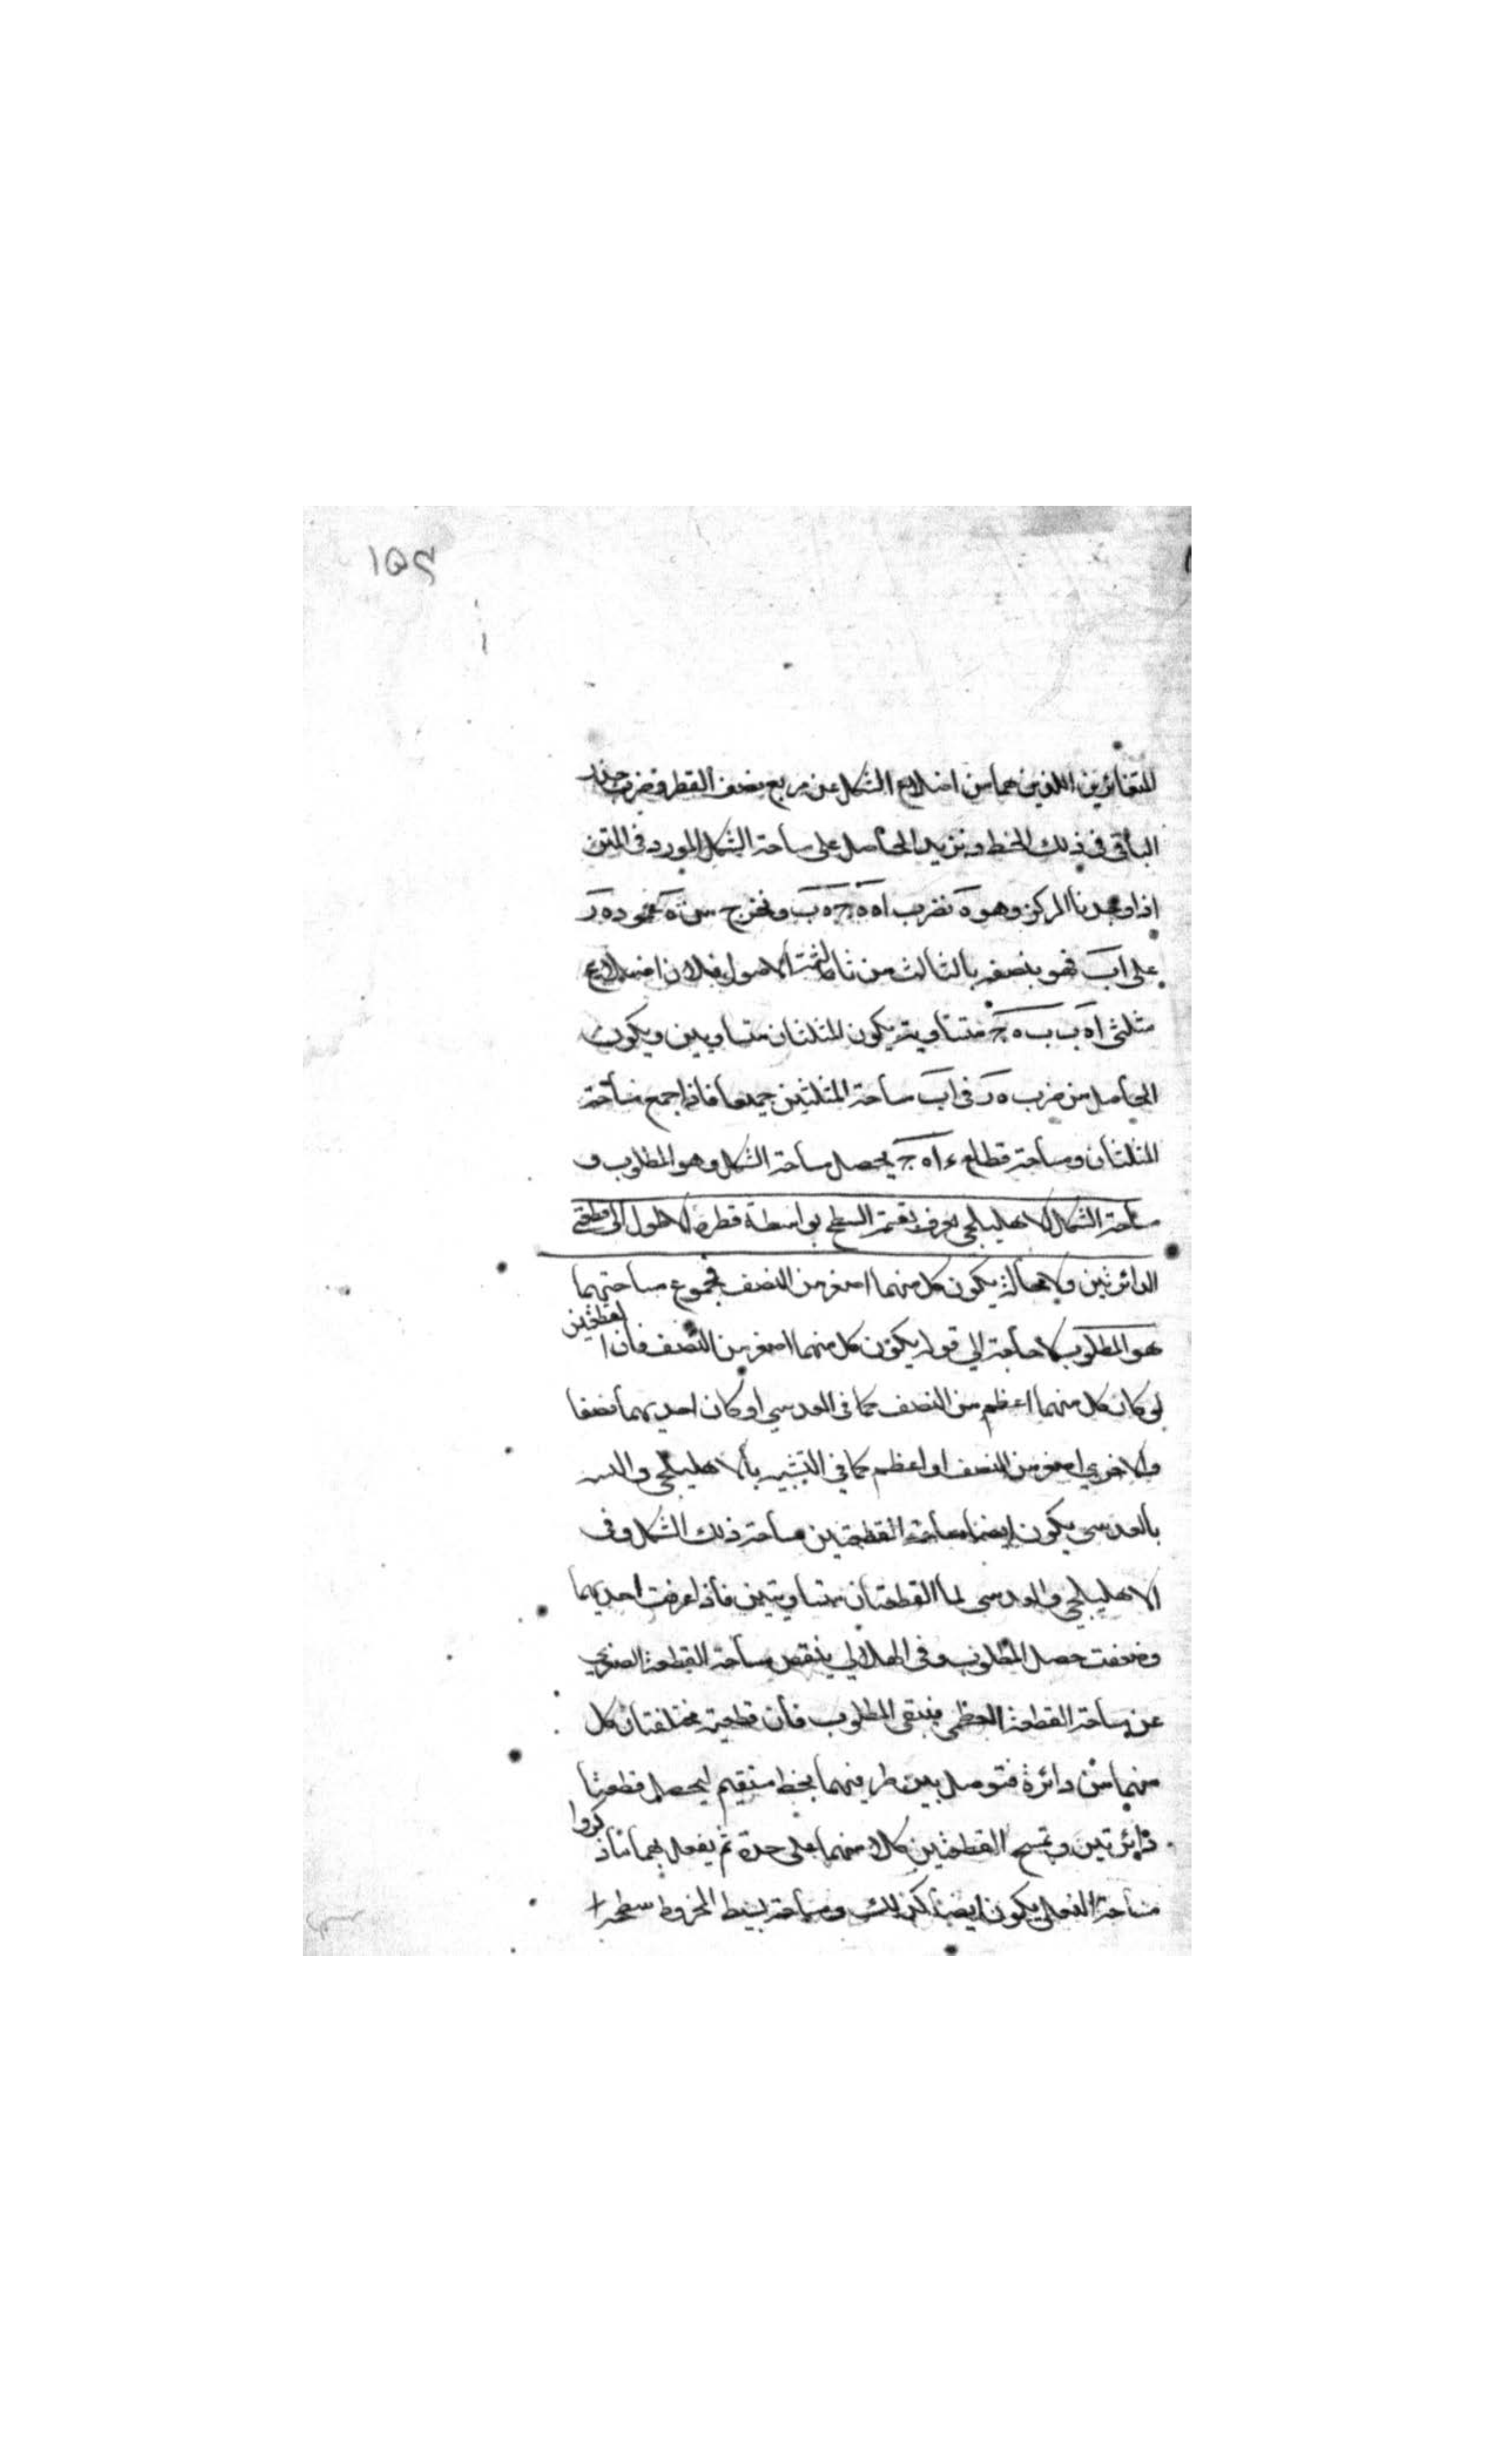 ١٥٩
المتقائرين اللذين هما من اضلاع الشكل عن مربع نصف القطر فضرب جذر
الباقى فى ذلك الخط ونزيد الحاصل على ساحة الشكل المورد فى المتن
اذا وجدنا المركز وهو ه نضرب اه ه ج ه ب ونخرج من ه عمود ه ر
على اب فهو ينصفه بالثالث من ثالثة الاصول فلان اضلاع
مثلثى اه ب ب ه ج متساوية يكون المثلثان متساويين ويكون
الحاصل من ضرب ه ر فى اب ساحة المثلثين جميعا فاذا جمع مساحة
المثلثان وساحة قطاع ء اه ج يحصل ساحة الشكل وهو المطلوب و
ساحة الشكل الاهليلجى يعرف بقسمة السطح بواسطة قطره الاطول الى قطعتى
الدائرتين ولا محالة يكون كل منهما اصغر من النصف فمجموع مساحتهما
هو المطلوب لا حاجة الى قوله يكون كل منهما اصغر من النصف فان القطعتين
لو كان كل منهما اعظم من النصف كما فى العدسي او كان احديهما نصفا
والاخرى اصغر من النصف او اعظم كما فى الشبيه بالاهليلجى والشبيه
بالعدسى يكون ايضا مساحة القطعتين مساحة ذلك الشكل وفى
الاهليلجى والعدسى لما القطعتان متساويتين فاذا عرفت احديهما
وضعفت حصل المطلوب وفى الهلالى ينقص مساحة القطعة الصغرى
عن مساحة القطعة العظمى فيبقى المطلوب فان قطعيه مختلفتان كل
منهما من دائرة فتوصل بين طرفيهما بخط مستقيم ليحصل قطعتا
دائرتين وتمسح القطعتين كلا منهما على حدة ثم يفعل بهما ما ذكروا
مساحة النعلى يكون ايضا كذلك ومساحة بسيط المخروط سطحه